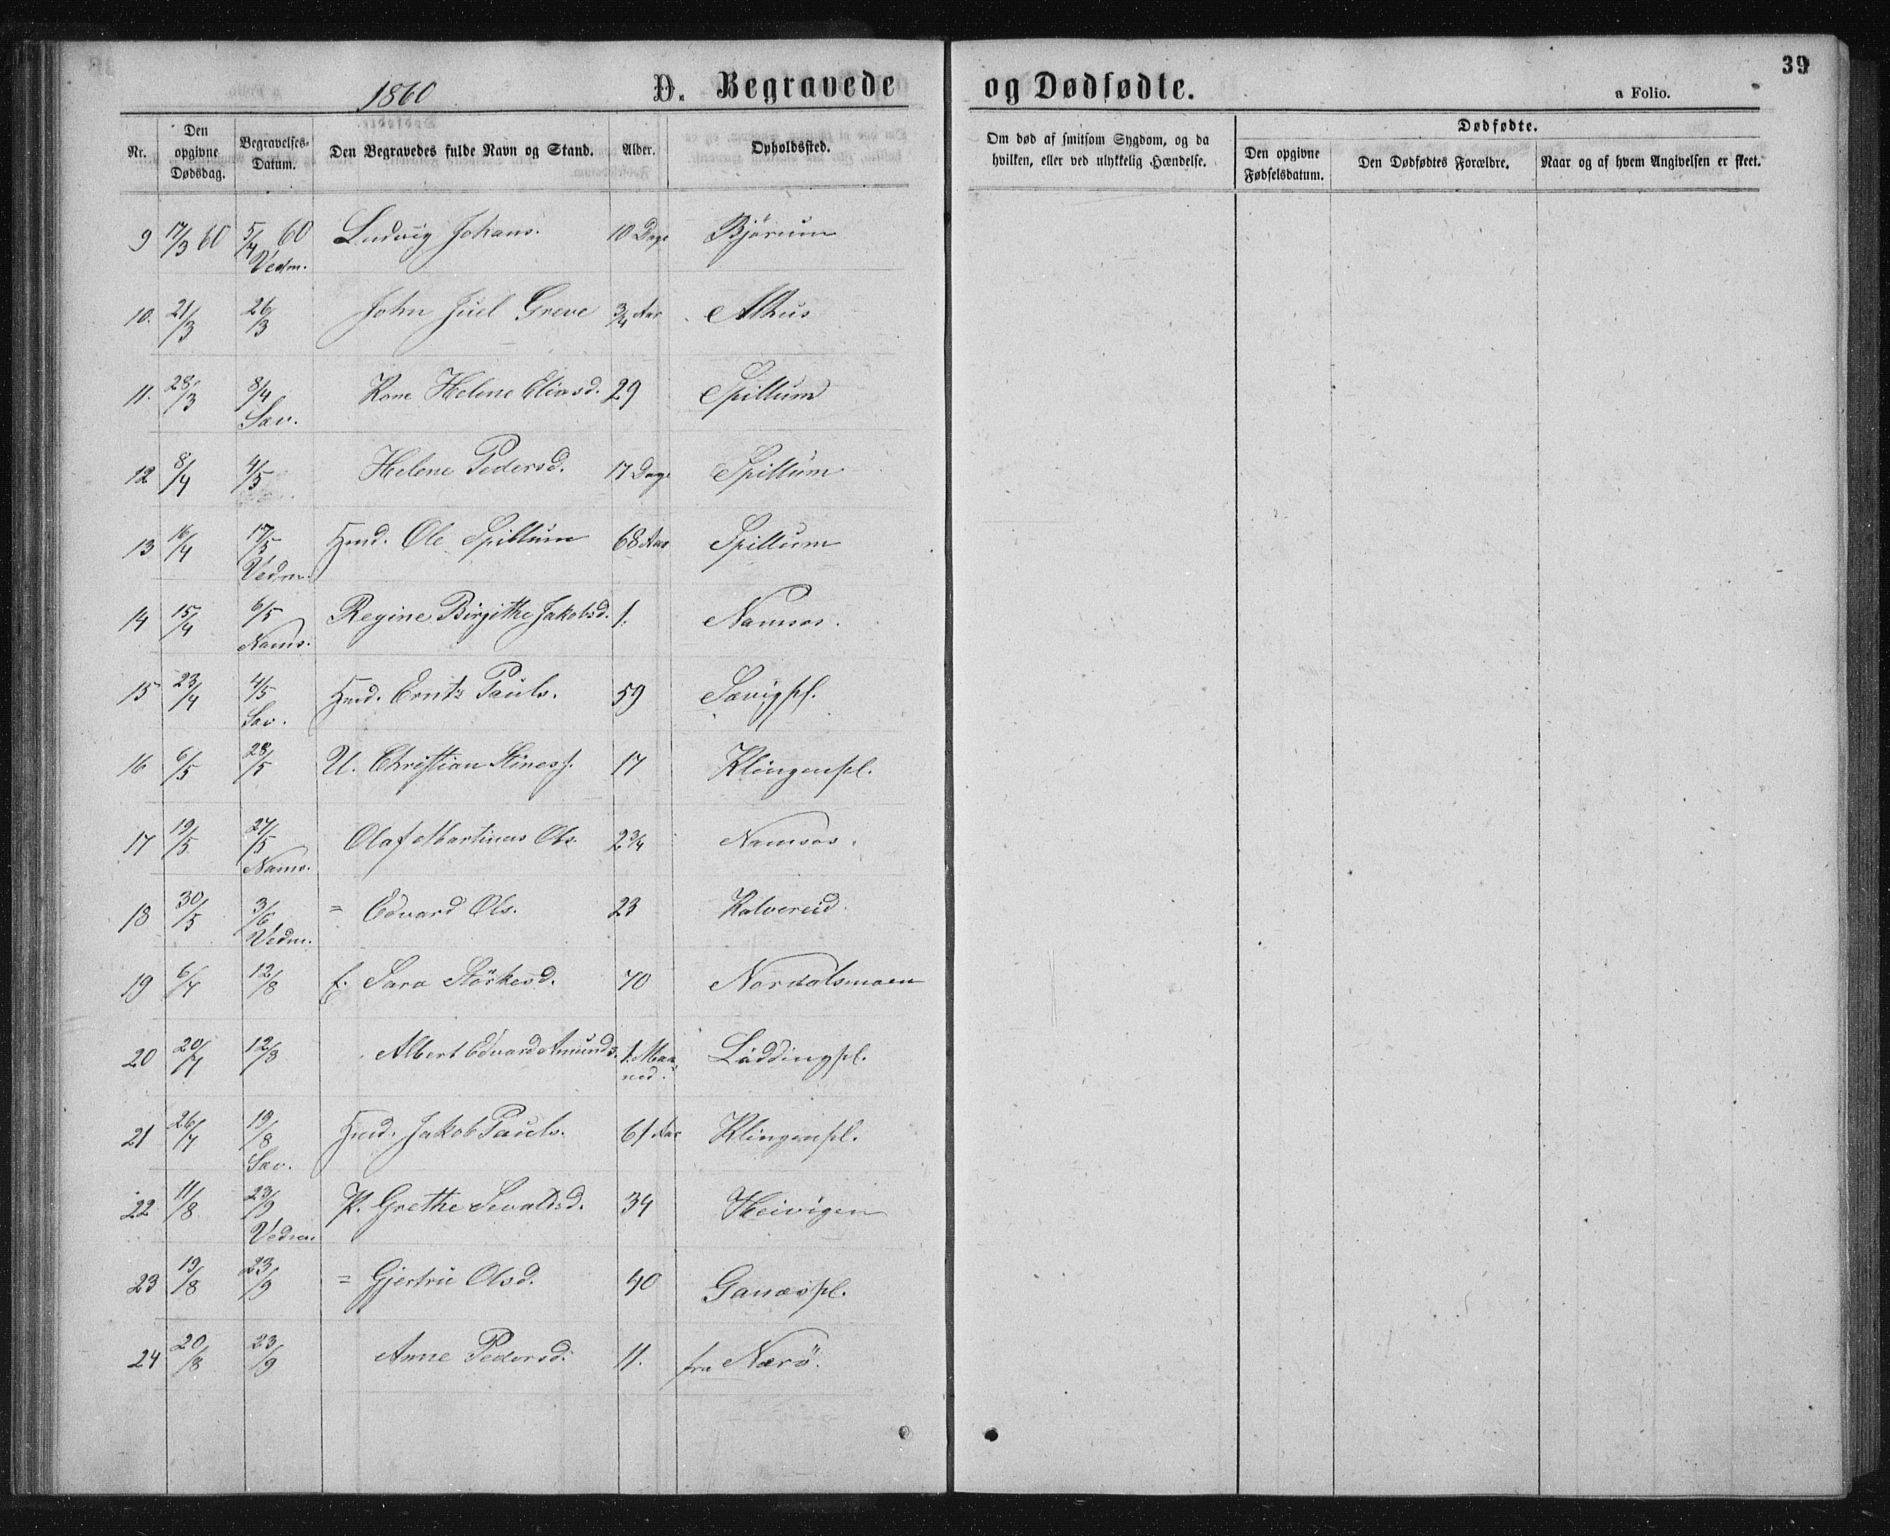 1860 D. Begravede og Dødfødte. 39
a Folio.
Nr. Den opgivne Dødsdag. Begravelses-Datum. Den Begravedes fulde Navn og Stand. Alder. Opholdssted. Om død af smitsom Sygdom, og da hvilken, eller ved ulykkelig Hændelse. Dødfødte.
Den opgivne Fødselsdatum. Den Dødfødtes Forældre. Naar og af hvem Angivelsen er skeet.
9 17/3 60 5/4 60 Ludvig Johans. 10 Dage Bjørum
Vedm.
10. 21/3 26/3 John Juel Greve 3/4 Aar Alhus
11. 28/3 8/4 Helene Eliasd. 29 Spillum
Sav.
12 8/4 4/5 Helene Pedersd. 17 Dage Spillum
13 16/4 17/5 Hmd. Ole Spillum 68 Aar Spillum
Vedm.
14 15/4 6/5 Regine Birgithe Jakobsd. 1. Namsos.
Nams.
15 23/4 4/5 Hmd. Ernts Pauls. 59 Savigpl.
Sav.
16 6/5 28/5 U. Christian 17 Klingenpl.
17 19/5 27/5 Olaf Martinus Ols. 2 3/4 Namsos.
Nams.
18 30/5 3/6 = Edvard Ols. 23 Kalvereid.
Vedm.
19 6/7 12/8 f. Sara Störkesd. 70 Nordalsmoen
20 20/7 12/8 Albert Edvard Amunds. 1. Maaned. Löddingpl.
21 26/7 19/8 Hmd. Jakob Pauls. 61 Aar Klingenpl.
Sav.
22 11/8 23/9 P. Grethe Sevaldsd. 34 Heivigen
Vedm.
23 19/8 23/9 = Gjertru Olsd. 40 Ganæspl.
24 20/8 23/9 Anne Pedersd. 11. fra Nærö.